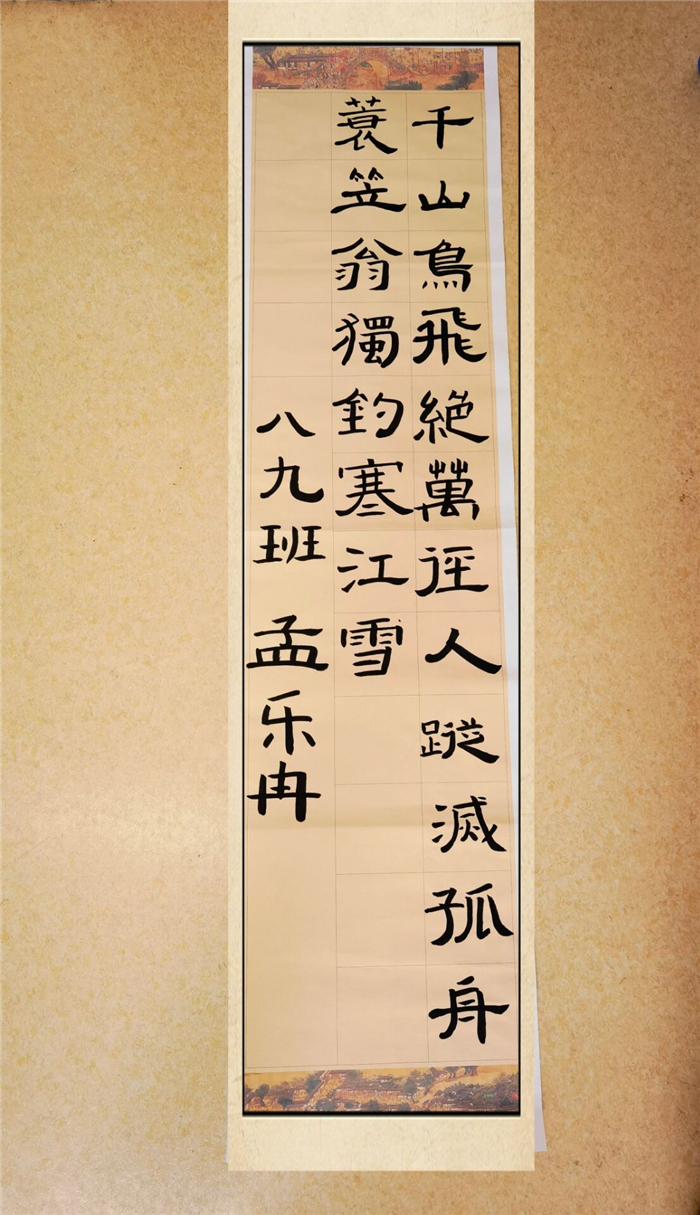 千山鳥飛絶萬徑人蹤滅孤舟
蓑笠翁獨釣寒江雪
八九班 孟乐冉